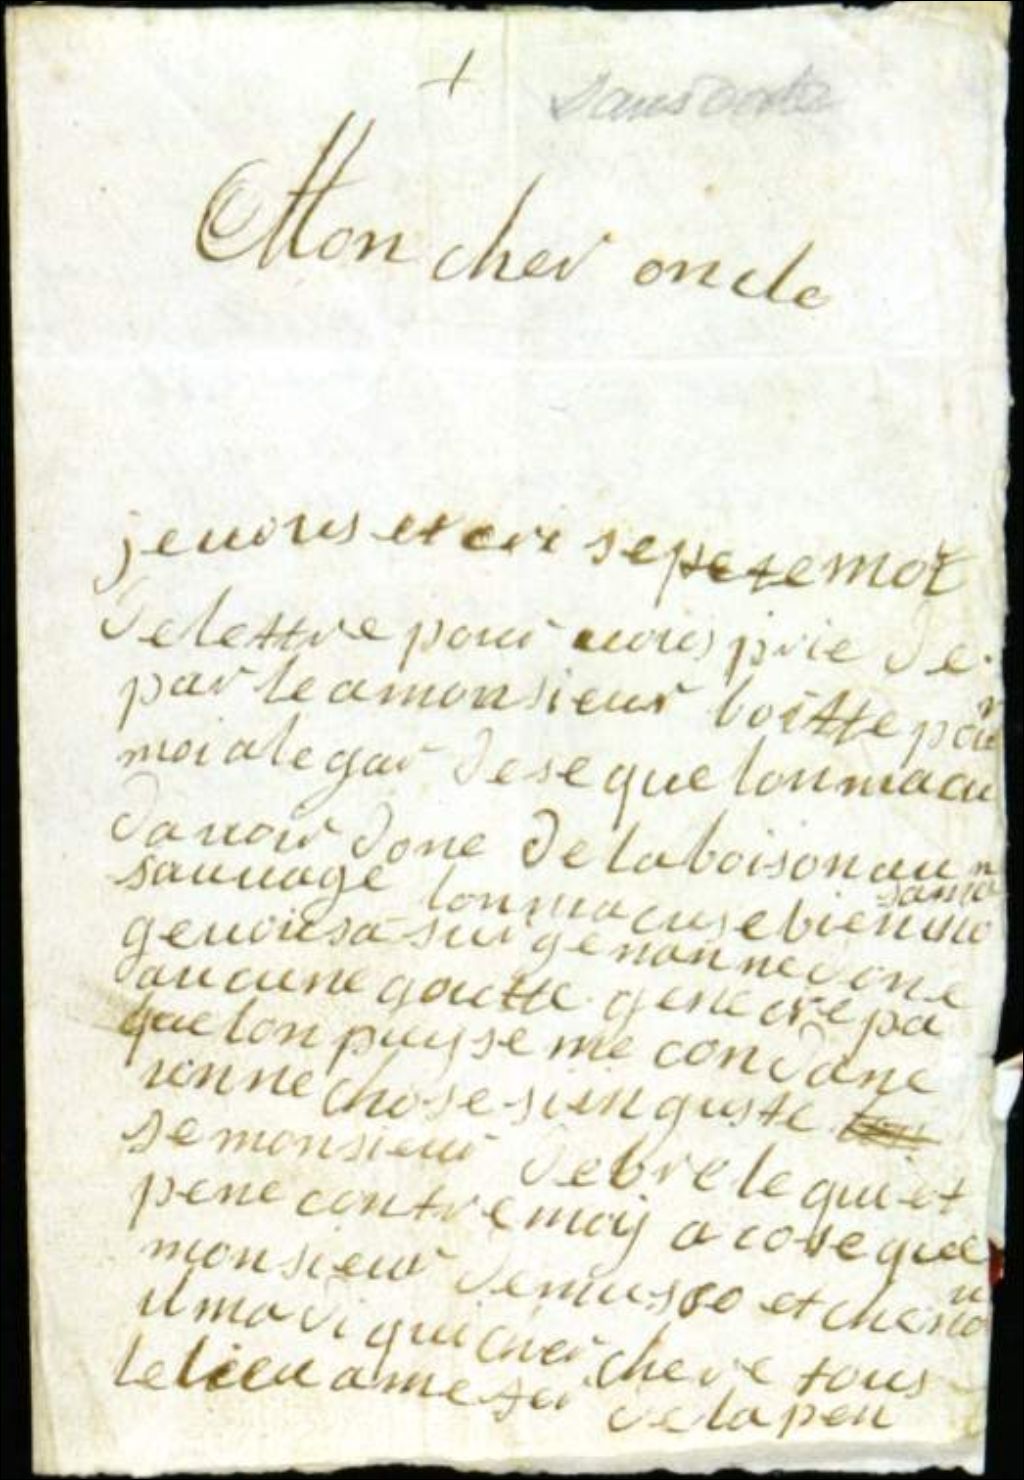 +
Sans date
Mon cher oncle
je vous ecri se pete mot
de lettre pour vous prie de
parle a monsieur boitte pour
moi a legar de se que lon macu
davoir done de la boison au
sauvage lon macuse bien
sans
ge vous asur ge nan ne done
aucune goutte ge ne cre pa
que lon puyse me condane
sennechose si in guste
se monsieur debrele qui et
pene contre moy a cose que
monsieur demuseo et che nou
il ma di qui cher chere tous
le lieu a me fer de la pen